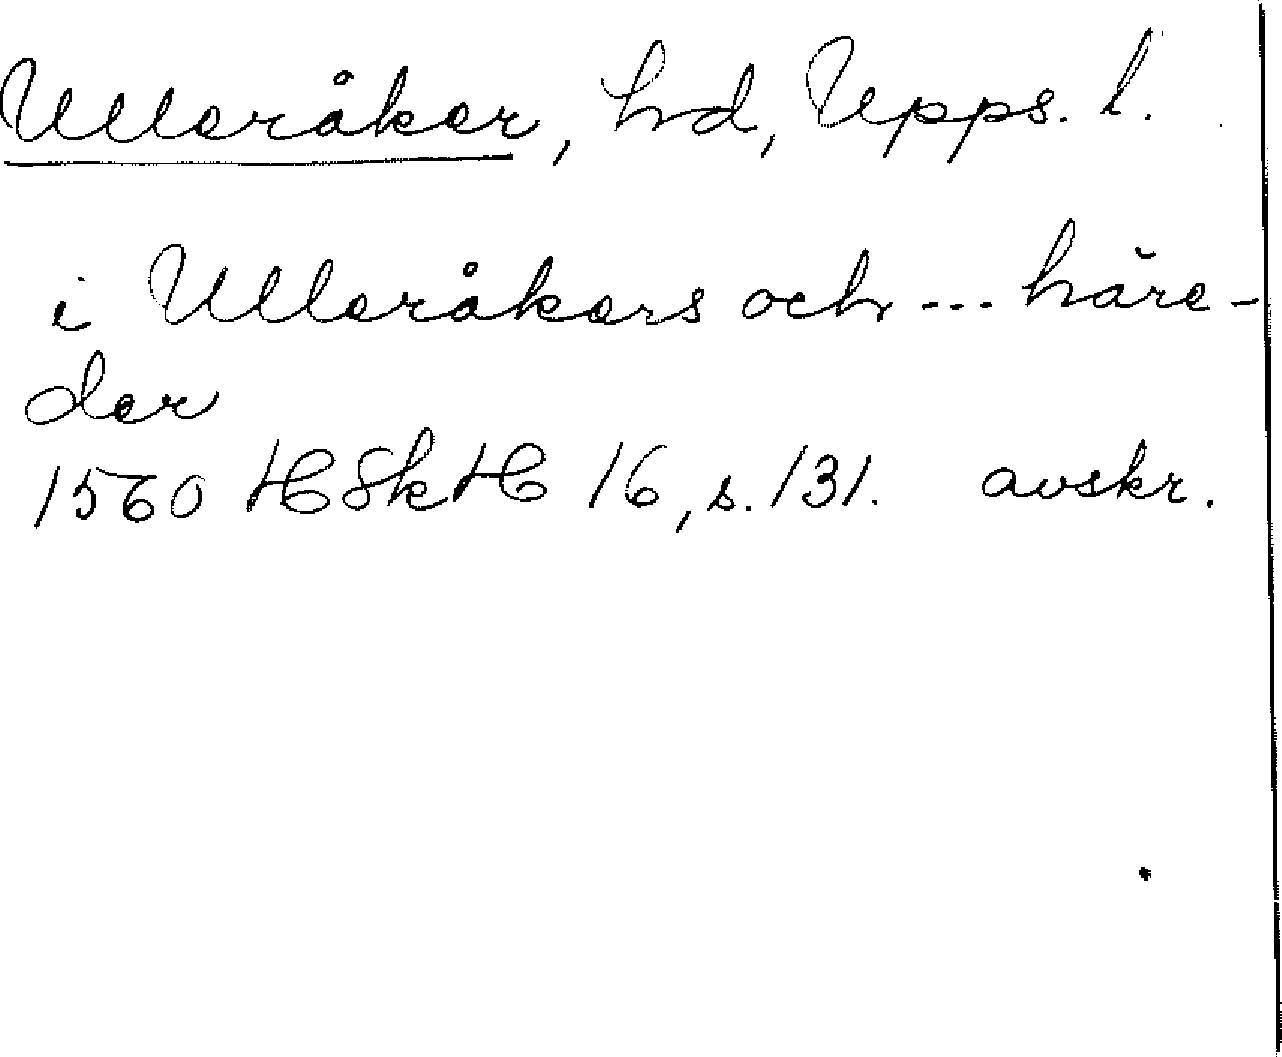 Ulleråker, hd, Upps. l.
i Ulleråkers och --- häre-
der
1560 HSkH 16, s. 131. avskr.